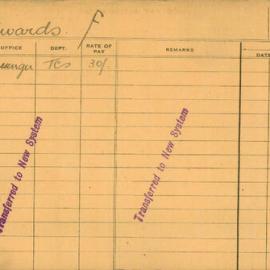 wards. F
OFFICE DEPT. RATE OF PAY REMARKS DATE
TCs 30/-
Transferred to New System
Transferred to New System